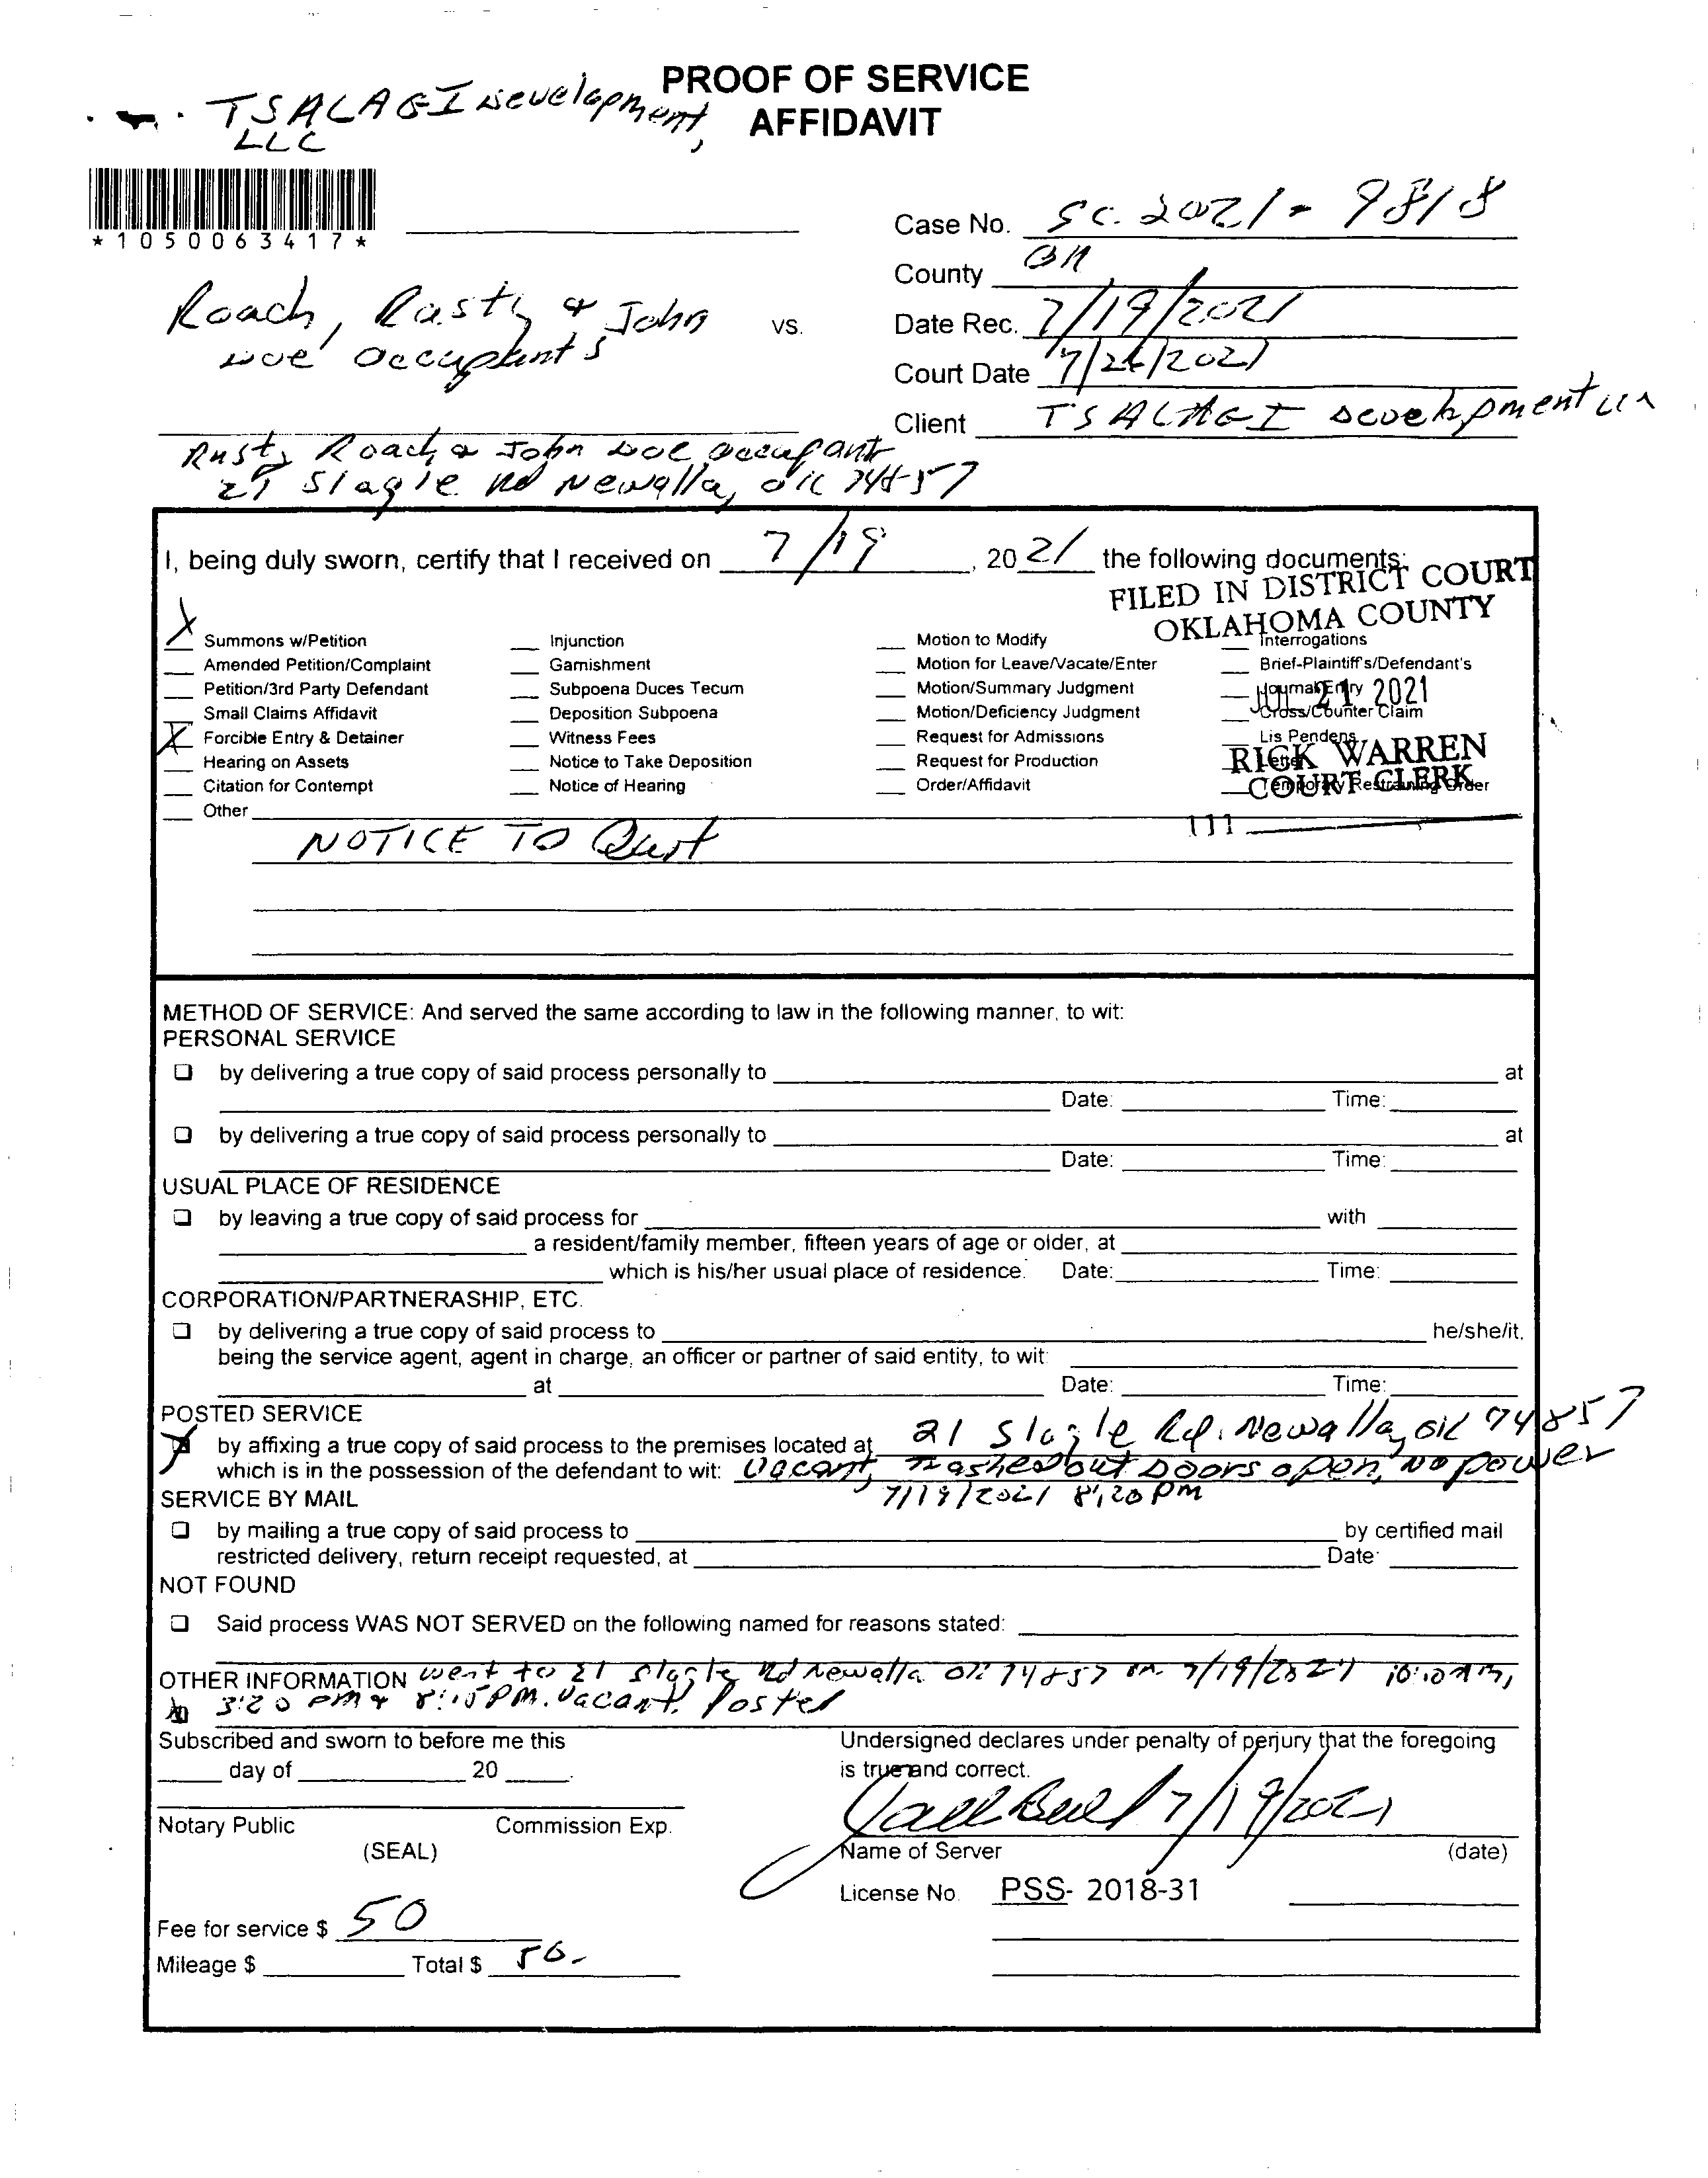 PROOF OF SERVICE
AFFIDAVIT
TSALAGI Development,
LLC
*1050063417*
Case No. SC. 2021 - 9818
County
Date Rec. 7/19/2021
Court Date 7/26/2021
Client TSALAGI Development
Roach, Rusty & John
Doe Occupants
vs.
Rusty Roach & John Doe occupant
21 Slagle Rd Newalla, OK 74857
I, being duly sworn, certify that I received on 7/19, 2021 the following documents:
FILED IN DISTRICT COURT
OKLAHOMA COUNTY
JUL 21 2021
RICK WARREN
COURT CLERK
111
X Summons w/Petition
Amended Petition/Complaint
Petition/3rd Party Defendant
Small Claims Affidavit
X Forcible Entry & Detainer
Hearing on Assets
Citation for Contempt
Other
Injunction
Garnishment
Subpoena Duces Tecum
Deposition Subpoena
Witness Fees
Notice to Take Deposition
Notice of Hearing
Motion to Modify
Motion for Leave/Vacate/Enter
Motion/Summary Judgment
Motion/Deficiency Judgment
Request for Admissions
Request for Production
Order/Affidavit
Interrogations
Brief-Plaintiff's/Defendant's
Journal Entry
Cross/Counter Claim
Lis Pendens
Letter
Temporary Restraining Order
NOTICE TO Quit
METHOD OF SERVICE: And served the same according to law in the following manner, to wit:
PERSONAL SERVICE
❑ by delivering a true copy of said process personally to at
Date: Time:
❑ by delivering a true copy of said process personally to at
Date: Time:
USUAL PLACE OF RESIDENCE
❑ by leaving a true copy of said process for with
a resident/family member, fifteen years of age or older, at
which is his/her usual place of residence. Date: Time:
CORPORATION/PARTNERASHIP, ETC.
❑ by delivering a true copy of said process to he/she/it,
being the service agent, agent in charge, an officer or partner of said entity, to wit:
at Date: Time:
POSTED SERVICE
X by affixing a true copy of said process to the premises located at 21 Slagle Rd. Newalla, OK 74857
which is in the possession of the defendant to wit: Vacant, Trashed out Doors open, No power
7/19/2021 8:20 PM
SERVICE BY MAIL
❑ by mailing a true copy of said process to by certified mail
restricted delivery, return receipt requested, at Date:
NOT FOUND
❑ Said process WAS NOT SERVED on the following named for reasons stated:
OTHER INFORMATION went to 21 Slagle Rd Newalla OK 74857 on 7/19/2021 10:10 AM,
3:20 PM & 8:15 PM. Vacant. Posted
Subscribed and sworn to before me this
day of 20 .
Notary Public Commission Exp.
(SEAL)
Undersigned declares under penalty of perjury that the foregoing
is true and correct.
7/19/2021
Name of Server (date)
License No. PSS- 2018-31
Fee for service $ 50
Mileage $ Total $ 50.-